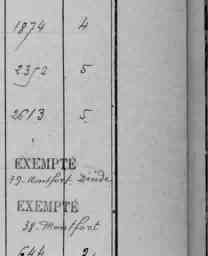 1874 4
2352 5
2613 5
EXEMPTÉ
39. Montfort Dinde
EXEMPTÉ
38. Montfort
644 2